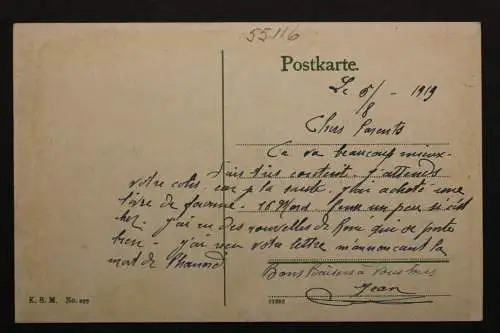 55116
Postkarte.
Le 5/8 - 1919
Chers Parents
Ça va beaucoup mieux.
suis très contente. J'attends
votre colis, car p la santé, j'ai acheté une
livre de farine - 16 Mark
c'est
cher. J'ai eu des nouvelles de René qui se porte
bien - j'ai reçu votre lettre m'annonçant la
mort de
Bons Baisers à vous tous
Jean
K. S. M. No. 277